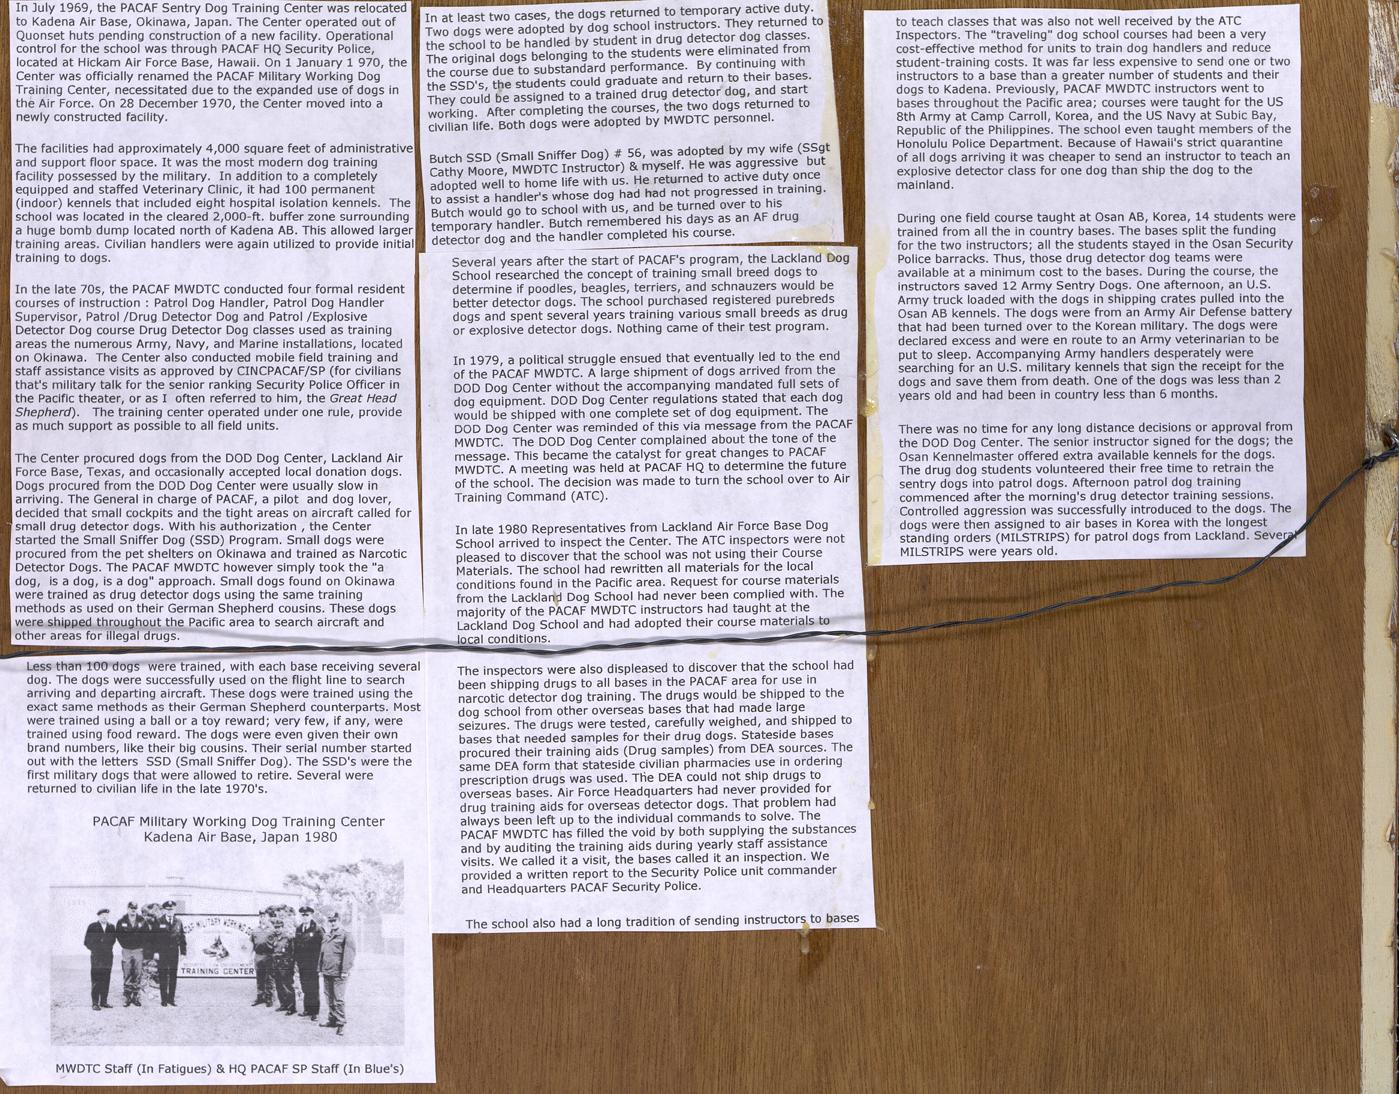 In July 1969, the PACAF Sentry Dog Training Center was relocated
to Kadena Air Base, Okinawa, Japan. The Center operated out of
Quonset huts pending construction of a new facility. Operational
control for the school was through PACAF HQ Security Police,
located at Hickam Air Force Base, Hawaii. On 1 January 1 970, the
Center was officially renamed the PACAF Military Working Dog
Training Center, necessitated due to the expanded use of dogs in
the Air Force. On 28 December 1970, the Center moved into a
newly constructed facility.
The facilities had approximately 4,000 square feet of administrative
and support floor space. It was the most modern dog training
facility possessed by the military. In addition to a completely
equipped and staffed Veterinary Clinic, it had 100 permanent
(indoor) kennels that included eight hospital isolation kennels. The
school was located in the cleared 2,000-ft. buffer zone surrounding
a huge bomb dump located north of Kadena AB. This allowed larger
training areas. Civilian handlers were again utilized to provide initial
training to dogs.
In the late 70s, the PACAF MWDTC conducted four formal resident
courses of instruction : Patrol Dog Handler, Patrol Dog Handler
Supervisor, Patrol /Drug Detector Dog and Patrol /Explosive
Detector Dog course Drug Detector Dog classes used as training
areas the numerous Army, Navy, and Marine installations, located
on Okinawa. The Center also conducted mobile field training and
staff assistance visits as approved by CINCPACAF/SP (for civilians
that's military talk for the senior ranking Security Police Officer in
the Pacific theater, or as I often referred to him, the Great Head
Shepherd). The training center operated under one rule, provide
as much support as possible to all field units.
The Center procured dogs from the DOD Dog Center, Lackland Air
Force Base, Texas, and occasionally accepted local donation dogs.
Dogs procured from the DOD Dog Center were usually slow in
arriving. The General in charge of PACAF, a pilot and dog lover,
decided that small cockpits and the tight areas on aircraft called for
small drug detector dogs. With his authorization , the Center
started the Small Sniffer Dog (SSD) Program. Small dogs were
procured from the pet shelters on Okinawa and trained as Narcotic
Detector Dogs. The PACAF MWDTC however simply took the "a
dog, is a dog, is a dog" approach. Small dogs found on Okinawa
were trained as drug detector dogs using the same training
methods as used on their German Shepherd cousins. These dogs
were shipped throughout the Pacific area to search aircraft and
other areas for illegal drugs.
Less than 100 dogs were trained, with each base receiving several
dog. The dogs were successfully used on the flight line to search
arriving and departing aircraft. These dogs were trained using the
exact same methods as their German Shepherd counterparts. Most
were trained using a ball or a toy reward; very few, if any, were
trained using food reward. The dogs were even given their own
brand numbers, like their big cousins. Their serial number started
out with the letters SSD (Small Sniffer Dog). The SSD's were the
first military dogs that were allowed to retire. Several were
returned to civilian life in the late 1970's.
PACAF Military Working Dog Training Center
Kadena Air Base, Japan 1980
MILITARY WORKING
TRAINING CENTER
MWDTC Staff (In Fatigues) & HQ PACAF SP Staff (In Blue's)
In at least two cases, the dogs returned to temporary active duty.
Two dogs were adopted by dog school instructors. They returned to
the school to be handled by student in drug detector dog classes.
The original dogs belonging to the students were eliminated from
the course due to substandard performance. By continuing with
the SSD's, the students could graduate and return to their bases.
They could be assigned to a trained drug detector dog, and start
working. After completing the courses, the two dogs returned to
civilian life. Both dogs were adopted by MWDTC personnel.
Butch SSD (Small Sniffer Dog) # 56, was adopted by my wife (SSgt
Cathy Moore, MWDTC Instructor) & myself. He was aggressive but
adopted well to home life with us. He returned to active duty once
to assist a handler's whose dog had had not progressed in training.
Butch would go to school with us, and be turned over to his
temporary handler. Butch remembered his days as an AF drug
detector dog and the handler completed his course.
Several years after the start of PACAF's program, the Lackland Dog
School researched the concept of training small breed dogs to
determine if poodles, beagles, terriers, and schnauzers would be
better detector dogs. The school purchased registered purebreds
dogs and spent several years training various small breeds as drug
or explosive detector dogs. Nothing came of their test program.
In 1979, a political struggle ensued that eventually led to the end
of the PACAF MWDTC. A large shipment of dogs arrived from the
DOD Dog Center without the accompanying mandated full sets of
dog equipment. DOD Dog Center regulations stated that each dog
would be shipped with one complete set of dog equipment. The
DOD Dog Center was reminded of this via message from the PACAF
MWDTC. The DOD Dog Center complained about the tone of the
message. This became the catalyst for great changes to PACAF
MWDTC. A meeting was held at PACAF HQ to determine the future
of the school. The decision was made to turn the school over to Air
Training Command (ATC).
In late 1980 Representatives from Lackland Air Force Base Dog
School arrived to inspect the Center. The ATC inspectors were not
pleased to discover that the school was not using their Course
Materials. The school had rewritten all materials for the local
conditions found in the Pacific area. Request for course materials
from the Lackland Dog School had never been complied with. The
majority of the PACAF MWDTC instructors had taught at the
Lackland Dog School and had adopted their course materials to
local conditions.
The inspectors were also displeased to discover that the school had
been shipping drugs to all bases in the PACAF area for use in
narcotic detector dog training. The drugs would be shipped to the
dog school from other overseas bases that had made large
seizures. The drugs were tested, carefully weighed, and shipped to
bases that needed samples for their drug dogs. Stateside bases
procured their training aids (Drug samples) from DEA sources. The
same DEA form that stateside civilian pharmacies use in ordering
prescription drugs was used. The DEA could not ship drugs to
overseas bases. Air Force Headquarters had never provided for
drug training aids for overseas detector dogs. That problem had
always been left up to the individual commands to solve. The
PACAF MWDTC has filled the void by both supplying the substances
and by auditing the training aids during yearly staff assistance
visits. We called it a visit, the bases called it an inspection. We
provided a written report to the Security Police unit commander
and Headquarters PACAF Security Police.
The school also had a long tradition of sending instructors to bases
to teach classes that was also not well received by the ATC
Inspectors. The "traveling" dog school courses had been a very
cost-effective method for units to train dog handlers and reduce
student-training costs. It was far less expensive to send one or two
instructors to a base than a greater number of students and their
dogs to Kadena. Previously, PACAF MWDTC instructors went to
bases throughout the Pacific area; courses were taught for the US
8th Army at Camp Carroll, Korea, and the US Navy at Subic Bay,
Republic of the Philippines. The school even taught members of the
Honolulu Police Department. Because of Hawaii's strict quarantine
of all dogs arriving it was cheaper to send an instructor to teach an
explosive detector class for one dog than ship the dog to the
mainland.
During one field course taught at Osan AB, Korea, 14 students were
trained from all the in country bases. The bases split the funding
for the two instructors; all the students stayed in the Osan Security
Police barracks. Thus, those drug detector dog teams were
available at a minimum cost to the bases. During the course, the
instructors saved 12 Army Sentry Dogs. One afternoon, an U.S.
Army truck loaded with the dogs in shipping crates pulled into the
Osan AB kennels. The dogs were from an Army Air Defense battery
that had been turned over to the Korean military. The dogs were
declared excess and were en route to an Army veterinarian to be
put to sleep. Accompanying Army handlers desperately were
searching for an U.S. military kennels that sign the receipt for the
dogs and save them from death. One of the dogs was less than 2
years old and had been in country less than 6 months.
There was no time for any long distance decisions or approval from
the DOD Dog Center. The senior instructor signed for the dogs; the
Osan Kennelmaster offered extra available kennels for the dogs.
The drug dog students volunteered their free time to retrain the
sentry dogs into patrol dogs. Afternoon patrol dog training
commenced after the morning's drug detector training sessions.
Controlled aggression was successfully introduced to the dogs. The
dogs were then assigned to air bases in Korea with the longest
standing orders (MILSTRIPS) for patrol dogs from Lackland. Several
MILSTRIPS were years old.